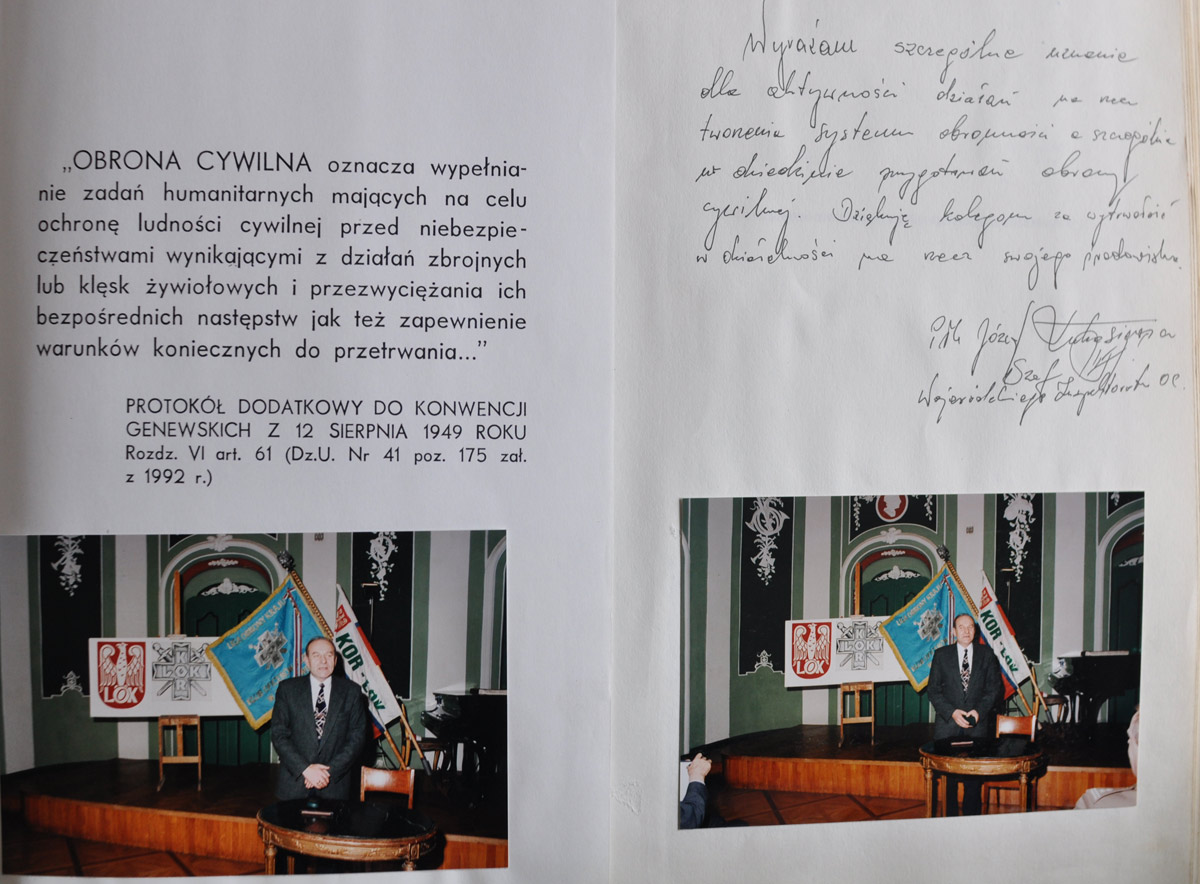 „OBRONA CYWILNA oznacza wypełnia-
nie zadań humanitarnych mających na celu
ochronę ludności cywilnej przed niebezpie-
czeństwami wynikającymi z działań zbrojnych
lub klęsk żywiołowych i przezwyciężania ich
bezpośrednich następstw jak też zapewnienie
warunków koniecznych do przetrwania...”
PROTOKÓŁ DODATKOWY DO KONWENCJI
GENEWSKICH Z 12 SIERPNIA 1949 ROKU
Rozdz. VI art. 61 (Dz.U. Nr 41 poz. 175 zał.
z 1992 r.)
Wyrażam szczególne uznanie
dla aktywności działań na rzecz
tworzenia systemu obronności a szczególnie
w dziedzinie przygotowań obrony
cywilnej. Dziękuję kolegom za wytrwałość
w działalności na rzecz swojego środowiska.
Józef
Szef
Wojewódzkiego Inspektoratu OC.
LOK
LOK
KOR
KOR - LOK
LOK
LOK
KOR
KOR - LOK